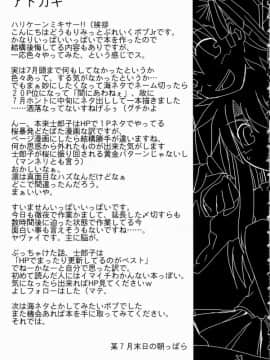 アトガキ
ハリケーンミキサー!!(挨拶
こんにちはどうもりみっとぶれいくボブJrです。
かなりいっぱいいっぱいで本を作ったので
結構後悔してる内容もありですが、
一応色々やってみた、という感じでス。
実は7月頭まで何もしてなかったというか
色々あって、する気がなかったというか…
２０Ｐ位になって「間にあわねぇ」、故に
７月ホントに中旬にネタ出しして一本描きました
……洒落なってないすねげふぅ（ウチかよ
んー、本来士郎子はHPで１Ｐネタでやってる
桜暴発とだぼた漫画な訳ですが、
ページ漫画にしたら結構勝手が違いますね。
何か思惑から外れたものが出来た気がします
士郎子が桜に振り回される黄金パターンじゃないし
（マンネリとも言う）
おかしいなぁ。
凛は真面目なハズなんだけどなぁ
どこで間違ったんだろう。
まぁいいや。
すいませんいっぱいいっぱいです。
今日も徹夜で作業かまして、延長した〆切すらも
数時間後に迫った状態で作業してる今
面白い事も言えそうもないですね……。
ヤヴァイです。主に脳が。
ぶっちゃけた話、士郎子は
「HPでまったり更新してるのがベスト」
でねーかなーと自分で思った訳で、
初めて読んだ人にはイマイチわかんない本っぽい。
気になったら出来ればHP見てくださいw
よしフォローはした（マテ。
次は海ネタとかしてみたいボブでした
また機会あれば本を手に取ってみてください。
それでは。
某７月末日の朝っぱら